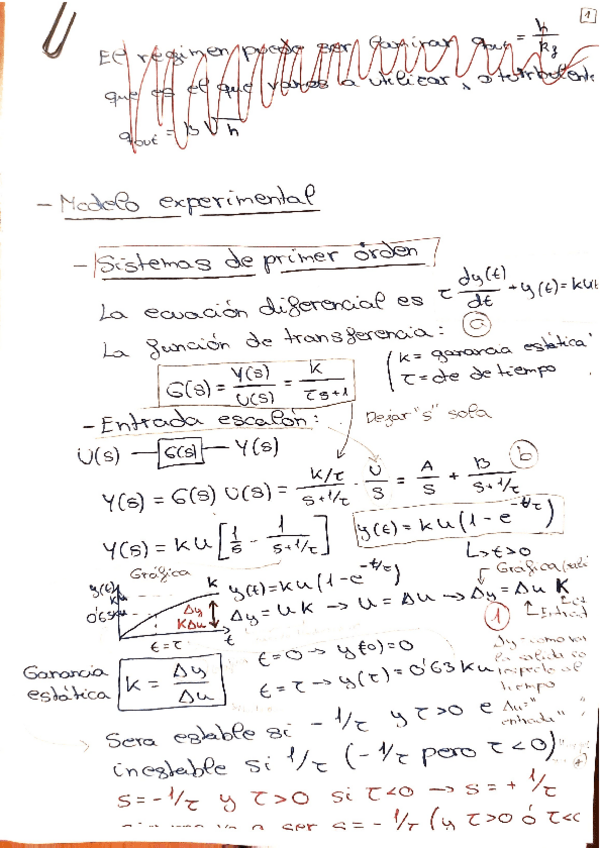 1
El regimen puede ser laminar qout = h/kz
que es el que vamos a utilizar, o turbulento
qout = B√h
- Modelo experimental
- Sistemas de primer órden
La ecuación diferencial es τ dy(t)/dt + y(t) = ku(t
La función de transferencia: (a)
G(s) = Y(s)/U(s) = k/(τs+1)
k = ganancia estática
τ = cte de tiempo
- Entrada escalón:
Dejar "s" sola
U(s) — G(s) — Y(s)
(b)
Y(s) = G(s) U(s) = (K/τ)/(s+1/τ) · U/s = A/s + B/(s+1/τ)
Y(s) = ku [1/s - 1/(s+1/τ)]
y(t) = ku(1 - e^(-t/τ))
↳ t>0
Gráfica
y(t)
ku
0'63ku
k
Δy
KΔu
t=τ
t
y(t) = ku(1 - e^(-t/τ))
Δy = uk → u = Δu → Δy = Δu K
(1)
Ganancia estática
k = Δy/Δu
t=0 → y(0)=0
t=τ → y(τ) = 0'63ku
Sera estable si - 1/τ y τ>0 e
inestable si 1/τ (-1/τ pero τ<0)
s = -1/τ y τ>0 si τ<0 → s = + 1/τ
a ser s = -1/τ (y τ>0 ó τ<